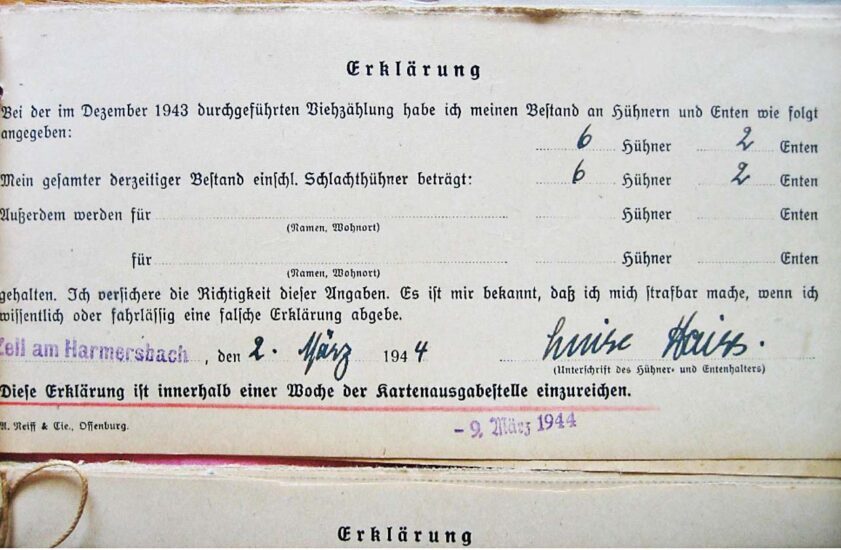 Erklärung
Bei der im Dezember 1943 durchgeführten Viehzählung habe ich meinen Bestand an Hühnern und Enten wie folgt
angegeben:
6 Hühner 2 Enten
Mein gesamter derzeitiger Bestand einschl. Schlachthühner beträgt: 6 Hühner 2 Enten
Außerdem werden für Hühner Enten
(Namen, Wohnort)
für Hühner Enten
(Namen, Wohnort)
gehalten. Ich versichere die Richtigkeit dieser Angaben. Es ist mir bekannt, daß ich mich strafbar mache, wenn ich
wissentlich oder fahrlässig eine falsche Erklärung abgebe.
Zell am Harmersbach, den 2. März 1944 Luise Haiss.
(Unterschrift des Hühner- und Entenhalters)
Diese Erklärung ist innerhalb einer Woche der Kartenausgabestelle einzureichen.
A. Reiff & Cie., Offenburg.
- 9. März 1944
Erklärung